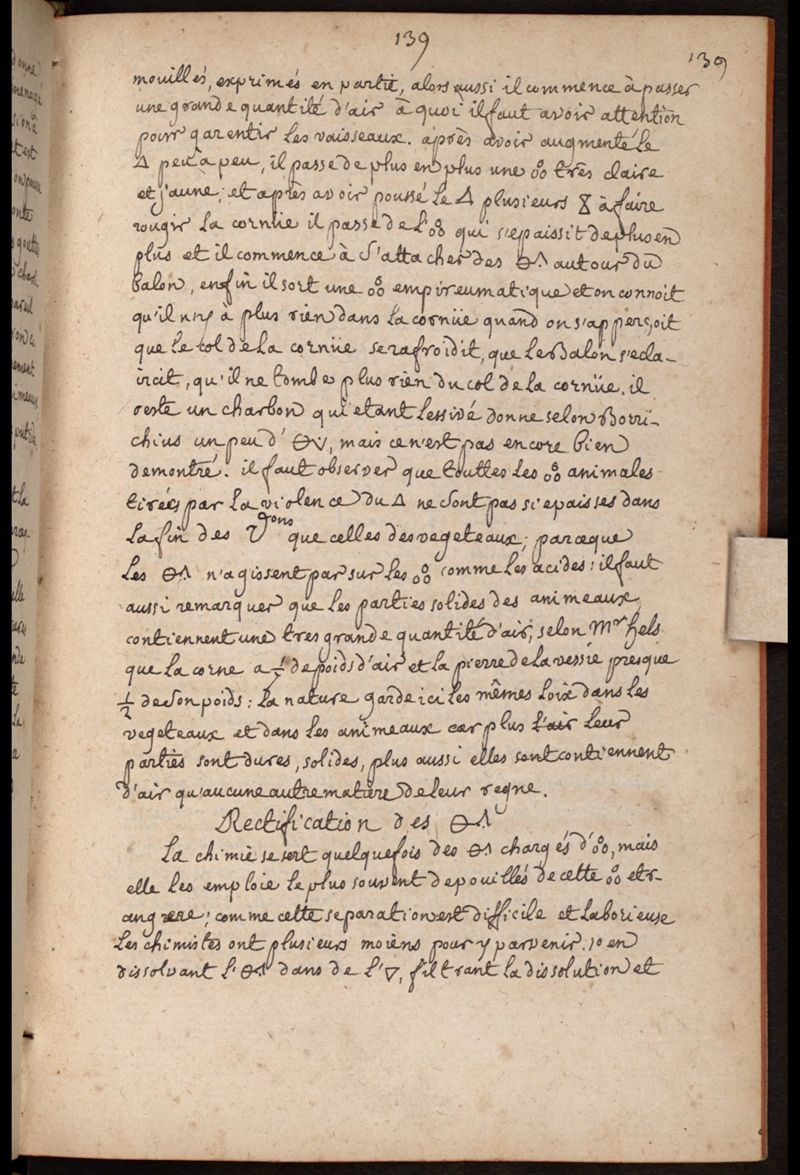 139
139
mouillés, exprimés en partie, alors aussi il commence à passer
une grande quantité d'air à quoi il faut avoir attention
pour garentir les vaisseaux. après avoir augmenté le
△ peu à peu, il passe de plus en plus une o̊o très claire
et jaune; et après avoir poussé le △ plusieurs ⧖ à faire
rougir la cornüe il passe de l'o̊o qui s'epaissit de plus en
plus et il commence à s'attacher des ⊖^ autour du
balon, enfin il sort une o̊o empireumatique et on connoit
qu'il n'y à plus rien dans la cornüe quand on s'apperçoit
que le col de la cornüe se rafroidit, que le Balon s'ecla-
ircit, qu'il ne tombe plus rien du col de la cornüe. il
reste un charbon qui etant lessivé donne selon Borri-
chius un peu d'⊖v, mais ce n'est pas encore bien
demontré. il faut observer que touttes les o̊o animales
tirées par la violence du △ ne sont pas si epaisses dans
la fin des Dons que celles des vegeteaux; parceque
les ⊖^ n'agissent par sur les o̊o comme les acides: il faut
aussi remarquer que les parties solides des animeaux
contiennent une tres grande quantité d'air; selon Mr hels
que la corne a 1/7 de poids d'air et la pierre de la vessie presque
1/2 de son poids: la nature garde ici les mêmes loix dans les
vegeteaux et dans les animeaux car plus l'air leur
parties sont dures, solides, plus aussi elles sont contiennent
d'air qu'aucune autre matiere de leur regne.
Rectification des ⊖^
La chimie se sert quelquefois des ⊖^ chargés d'o̊o, mais
elle les emploie le plus souvent depouillés de cette o̊o etr-
angere; comme cette separation est difficile et laborieuse
les chimistes ont plusieurs moiens pour y parvenir. 1o en
dissolvant l'⊖^ dans de l'▽, filtrant la dissolution et